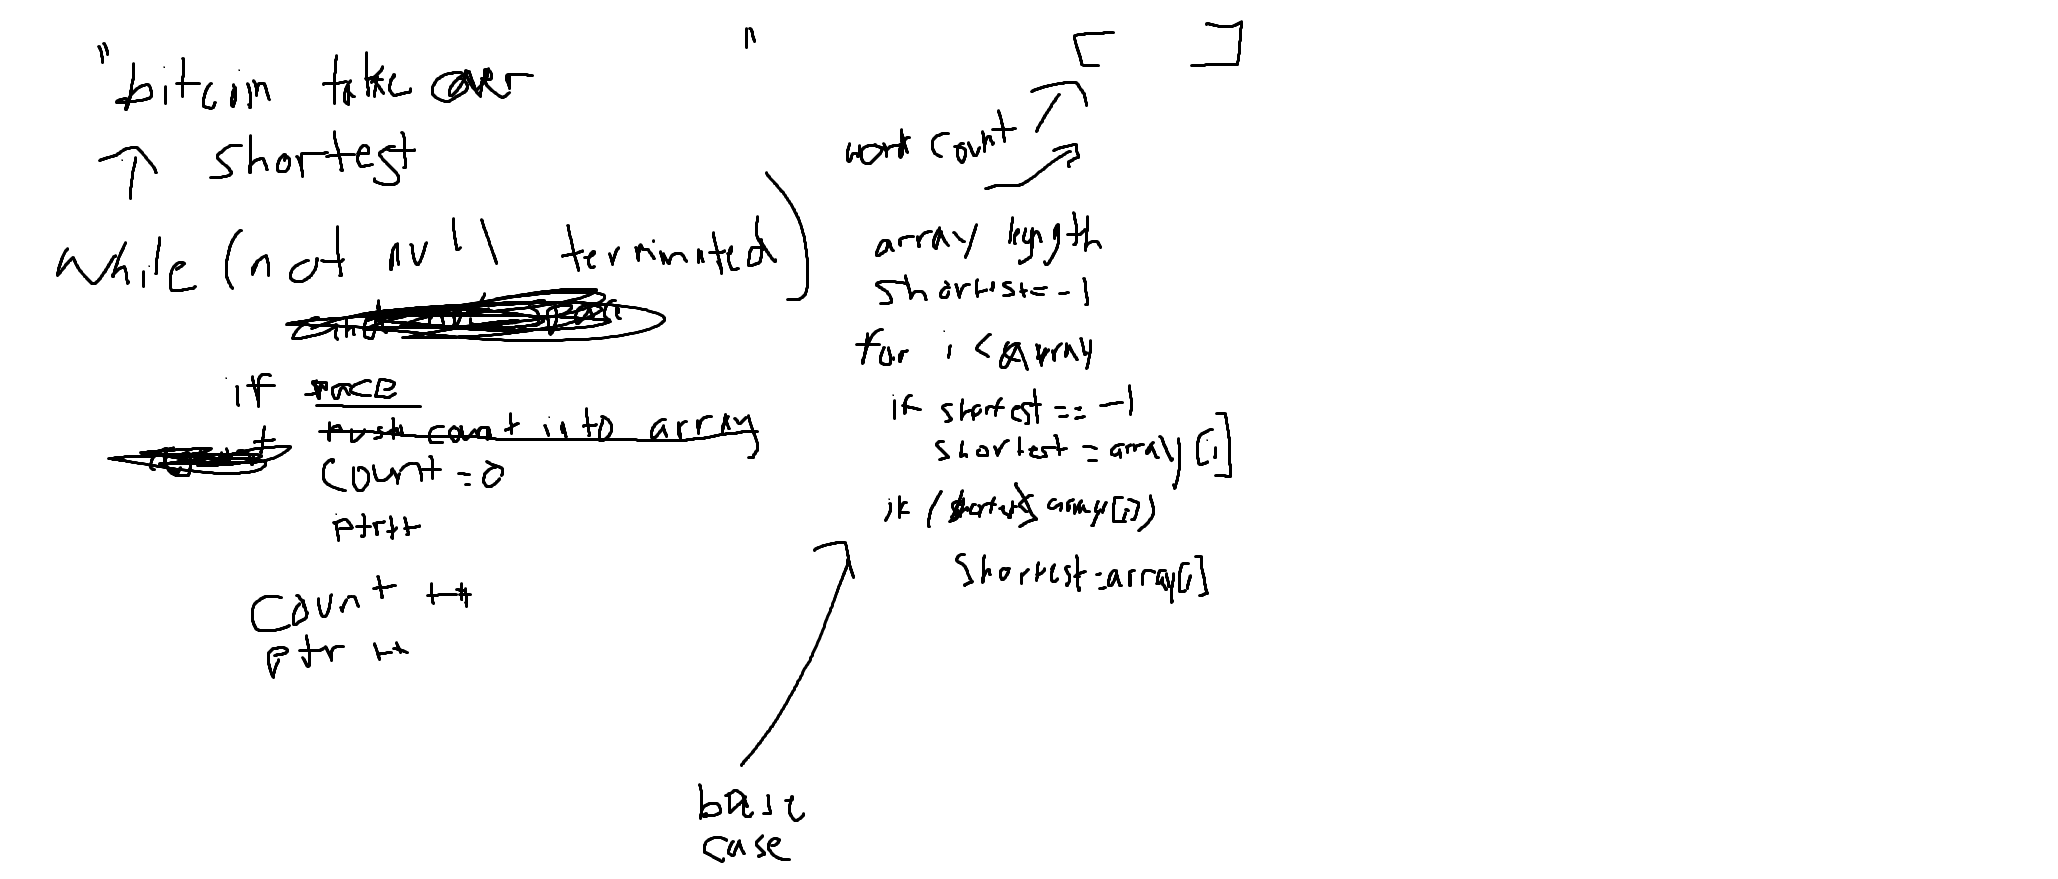 "bitcoin take over "
↑ shortest
while (not null terminated)
if space
push count into array
count = 0
ptr++
count ++
ptr ++
[ ]
word count
array length
shortest = -1
for i < array
if shortest == -1
shortest = array[i]
if (shortest > array[i])
shortest = array[i]
base
case